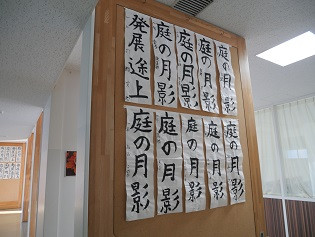 発展途上
庭の月影
庭の月影
庭の月影
庭の月影
庭の月影
庭の月影
庭の月影
庭の月影
庭の月影